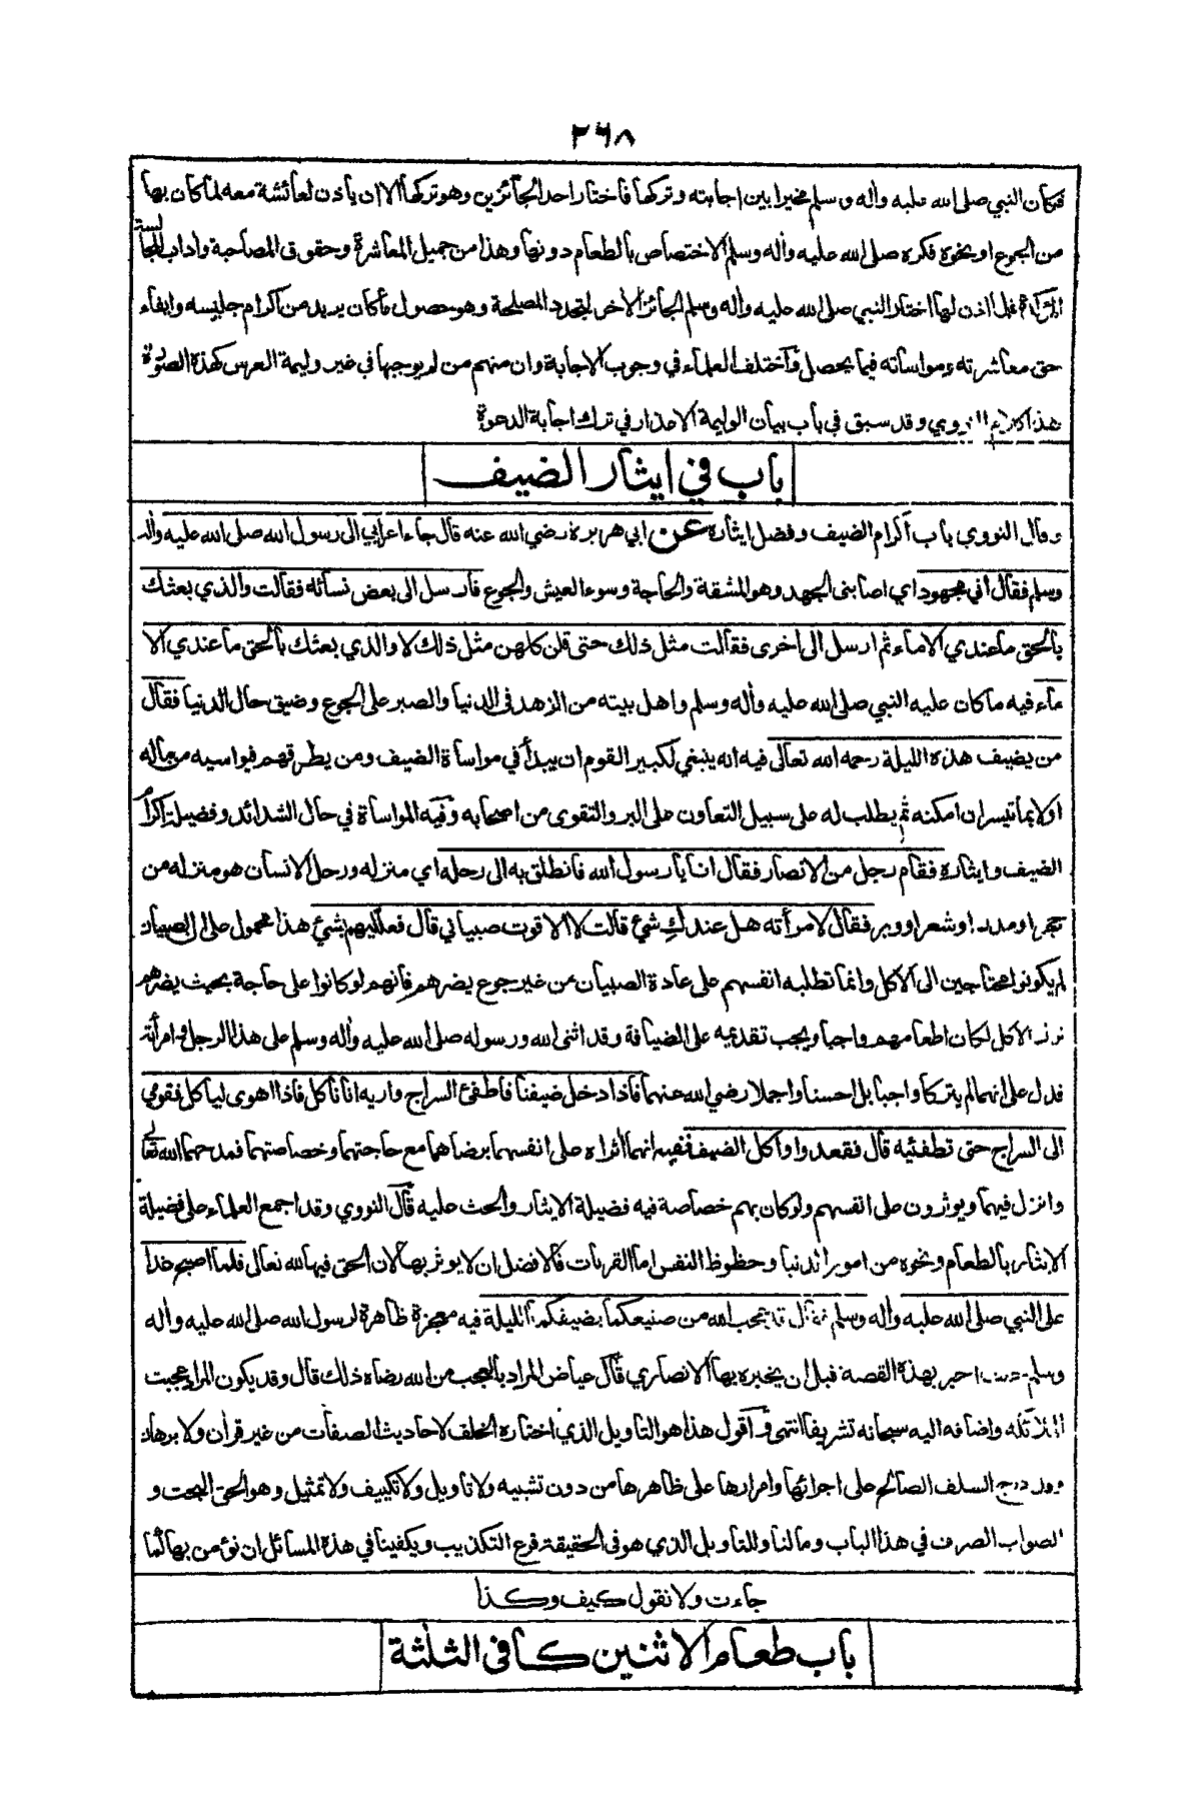 ٢٦٨
فكان النبي صلى الله عليه واله وسلم مخيرا بين اجابته وتركها فاختار احد الجائزين وهو تركها الا ان ياذن لعائشة معه لما كان بها
من الجوع او نحوه فكره صلى الله عليه واله وسلم الاختصاص بالطعام دونها وهذا من جميل المعاشرة وحقوق المصاحبة واداب المجالسة
المؤكدة فلما اذن لها اختار النبي صلى الله عليه واله وسلم الجائز الأخر لتجدد المصلحة وهو حصول ما كان يريد من اكرام جليسه وايفاء
حق معاشرته ومواساته فيما يحصل وقد اختلف العلماء في وجوب الاجابة وان منهم من لم يوجبها في غير وليمة العرس كهذه الصورة
هذا كلام النووي وقد سبق في باب بيان الوليمة الاعذار في ترك اجابة الدعوة
باب في ايثار الضيف
وقال النووي باب اكرام الضيف وفضل ايثاره عن ابي هريرة رضي الله عنه قال جاء اعرابي الى رسول الله صلى الله عليه واله
وسلم فقال اني مجهود اي اصابنى الجهد وهو المشقة والحاجة وسوء العيش والجوع فارسل الى بعض نسائه فقالت والذي بعثك
بالحق ما عندي الا ماء ثم ارسل الى اخرى فقالت مثل ذلك حتى قلن كلهن مثل ذلك لا والذي بعثك بالحق ما عندي الا
ماء فيه ما كان عليه النبي صلى الله عليه واله وسلم واهل بيته من الزهد فى الدنيا والصبر على الجوع وضيق حال الدنيا فقال
من يضيف هذه الليلة رحمه الله تعالى فيه انه ينبغي لكبير القوم ان يبدأ في مواساة الضيف ومن يطرقهم فيواسيه من ماله
اولا بما تيسر ان امكنه ثم يطلب له على سبيل التعاون على البر والتقوى من اصحابه وفيه المواساة في حال الشدائد وفضيلة اكرام
الضيف وايثاره فقام رجل من الانصار فقال انا يا رسول الله فانطلق به الى رحله اي منزله ورحل الانسان هو منزله من
حجر او مدر او شعر او وبر فقال لامرأته هل عندكِ شئ قالت لا الا قوت صبياني قال فعلليهم بشئ هذا محمول على ان الصبيان
لم يكونوا محتاجين الى الأكل وانما تطلبه انفسهم على عادة الصبيان من غير جوع يضرهم فانهم لو كانوا على حاجة بحيث يضرهم
ترك الاكل لكان اطعامهم واجبا ويجب تقديمه على الضيافة وقد اثنى الله ورسوله صلى الله عليه واله وسلم على هذا الرجل وامرأته
فدل على انهما لم يتركا واجبا بل احسنا واجملا رضي الله عنهما فاذا دخل ضيفنا فاطفئ السراج واريه انا نأكل فاذا اهوى لياكل فقومي
الى السراج حتى تطفئيه قال فقعدوا واكل الضيف ففيه انهما أثراه على انفسهما برضاهما مع حاجتهما وخصاصتهما فمدحهما الله تعالى
وانزل فيهما ويوثرون على انفسهم ولو كان بهم خصاصة فيه فضيلة الايثار والحث عليه قال النووي وقد اجمع العلماء على فضيلة
الايثار بالطعام ونحوه من امور الدنيا وحظوظ النفس اما القربات فالافضل ان لا يوثر بها لان الحق فيها لله تعالى فلما اصبح غدا
على النبي صلى الله عليه واله وسلم فقال قد عجب الله من صنيعكما بضيفكما الليلة فيه معجزة ظاهرة لرسول الله صلى الله عليه واله
وسلم اخبر بهذه القصة قبل ان يخبره بها الانصاري قال عياض المراد بالعجب من الله رضاه ذلك قال وقد يكون المراد عجبت
الملائكة واضافه اليه سبحانه تشريفا انتهى واقول هذا هو التاويل الذي اختاره الخلف لاحاديث الصفات من غير قرأن ولا برهان
وقد درج السلف الصالح على اجرائها وامرارها على ظاهرها من دون تشبيه ولا تاويل ولا تكييف ولا تمثيل وهو الحق البحت و
الصواب الصرف في هذا الباب ومالنا وللتاويل الذي هو فى الحقيقة فرع التكذيب ويكفينا في هذه المسائل ان نؤمن بها كما
جاءت ولا نقول كيف وكذا
باب طعام الاثنين كافى الثلثة